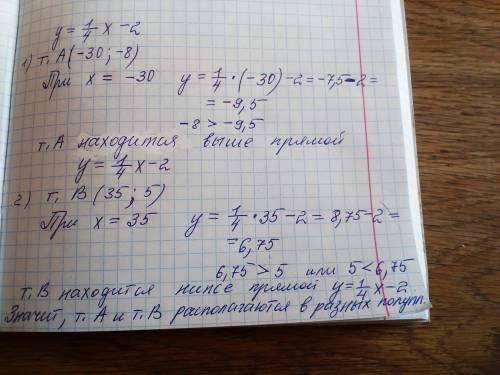 y = 1/4 x - 2
1) т. A (-30; -8)
При x = -30 y = 1/4 · (-30) - 2 = -7,5 - 2 =
= -9,5
-8 > -9,5
т. А находится выше прямой
y = 1/4 x - 2
2) т. B (35; 5)
При x = 35 y = 1/4 · 35 - 2 = 8,75 - 2 =
= 6,75
6,75 > 5 или 5 < 6,75
т. В находится ниже прямой y = 1/4 x - 2
Значит, т. А и т. В располагаются в разных полупл.